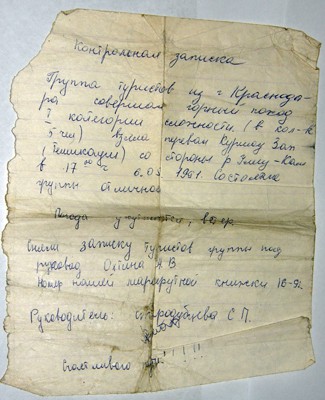 Контрольная записка
Группа туристов из г Краснода-
ра совершая горный поход
I категории сложности. (в кол-ве
5 чел) взяла перевал Курмы Зап
со стороны р
в 17 00 ч 6.05 1981. состояние
группы отличное
Погода ухудшается, ветер.
Сняли записку туристов группы под
руковод А В
Номер нашей маршрутной книжки 1Б-92
Руководитель: Стародубцева С П.
Счастливого пути!!!!!